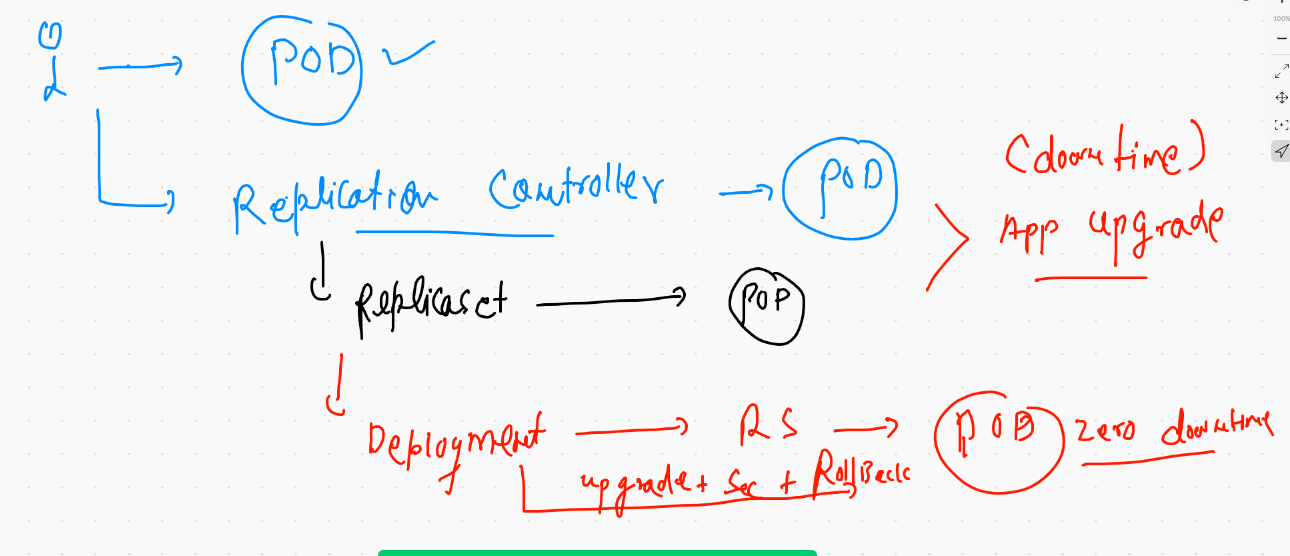 POD
(downtime)
Replication Controller POD
App upgrade
Replicaset POP
Deployment RS POD zero downtime
upgrade + Sec + RollBack
100%